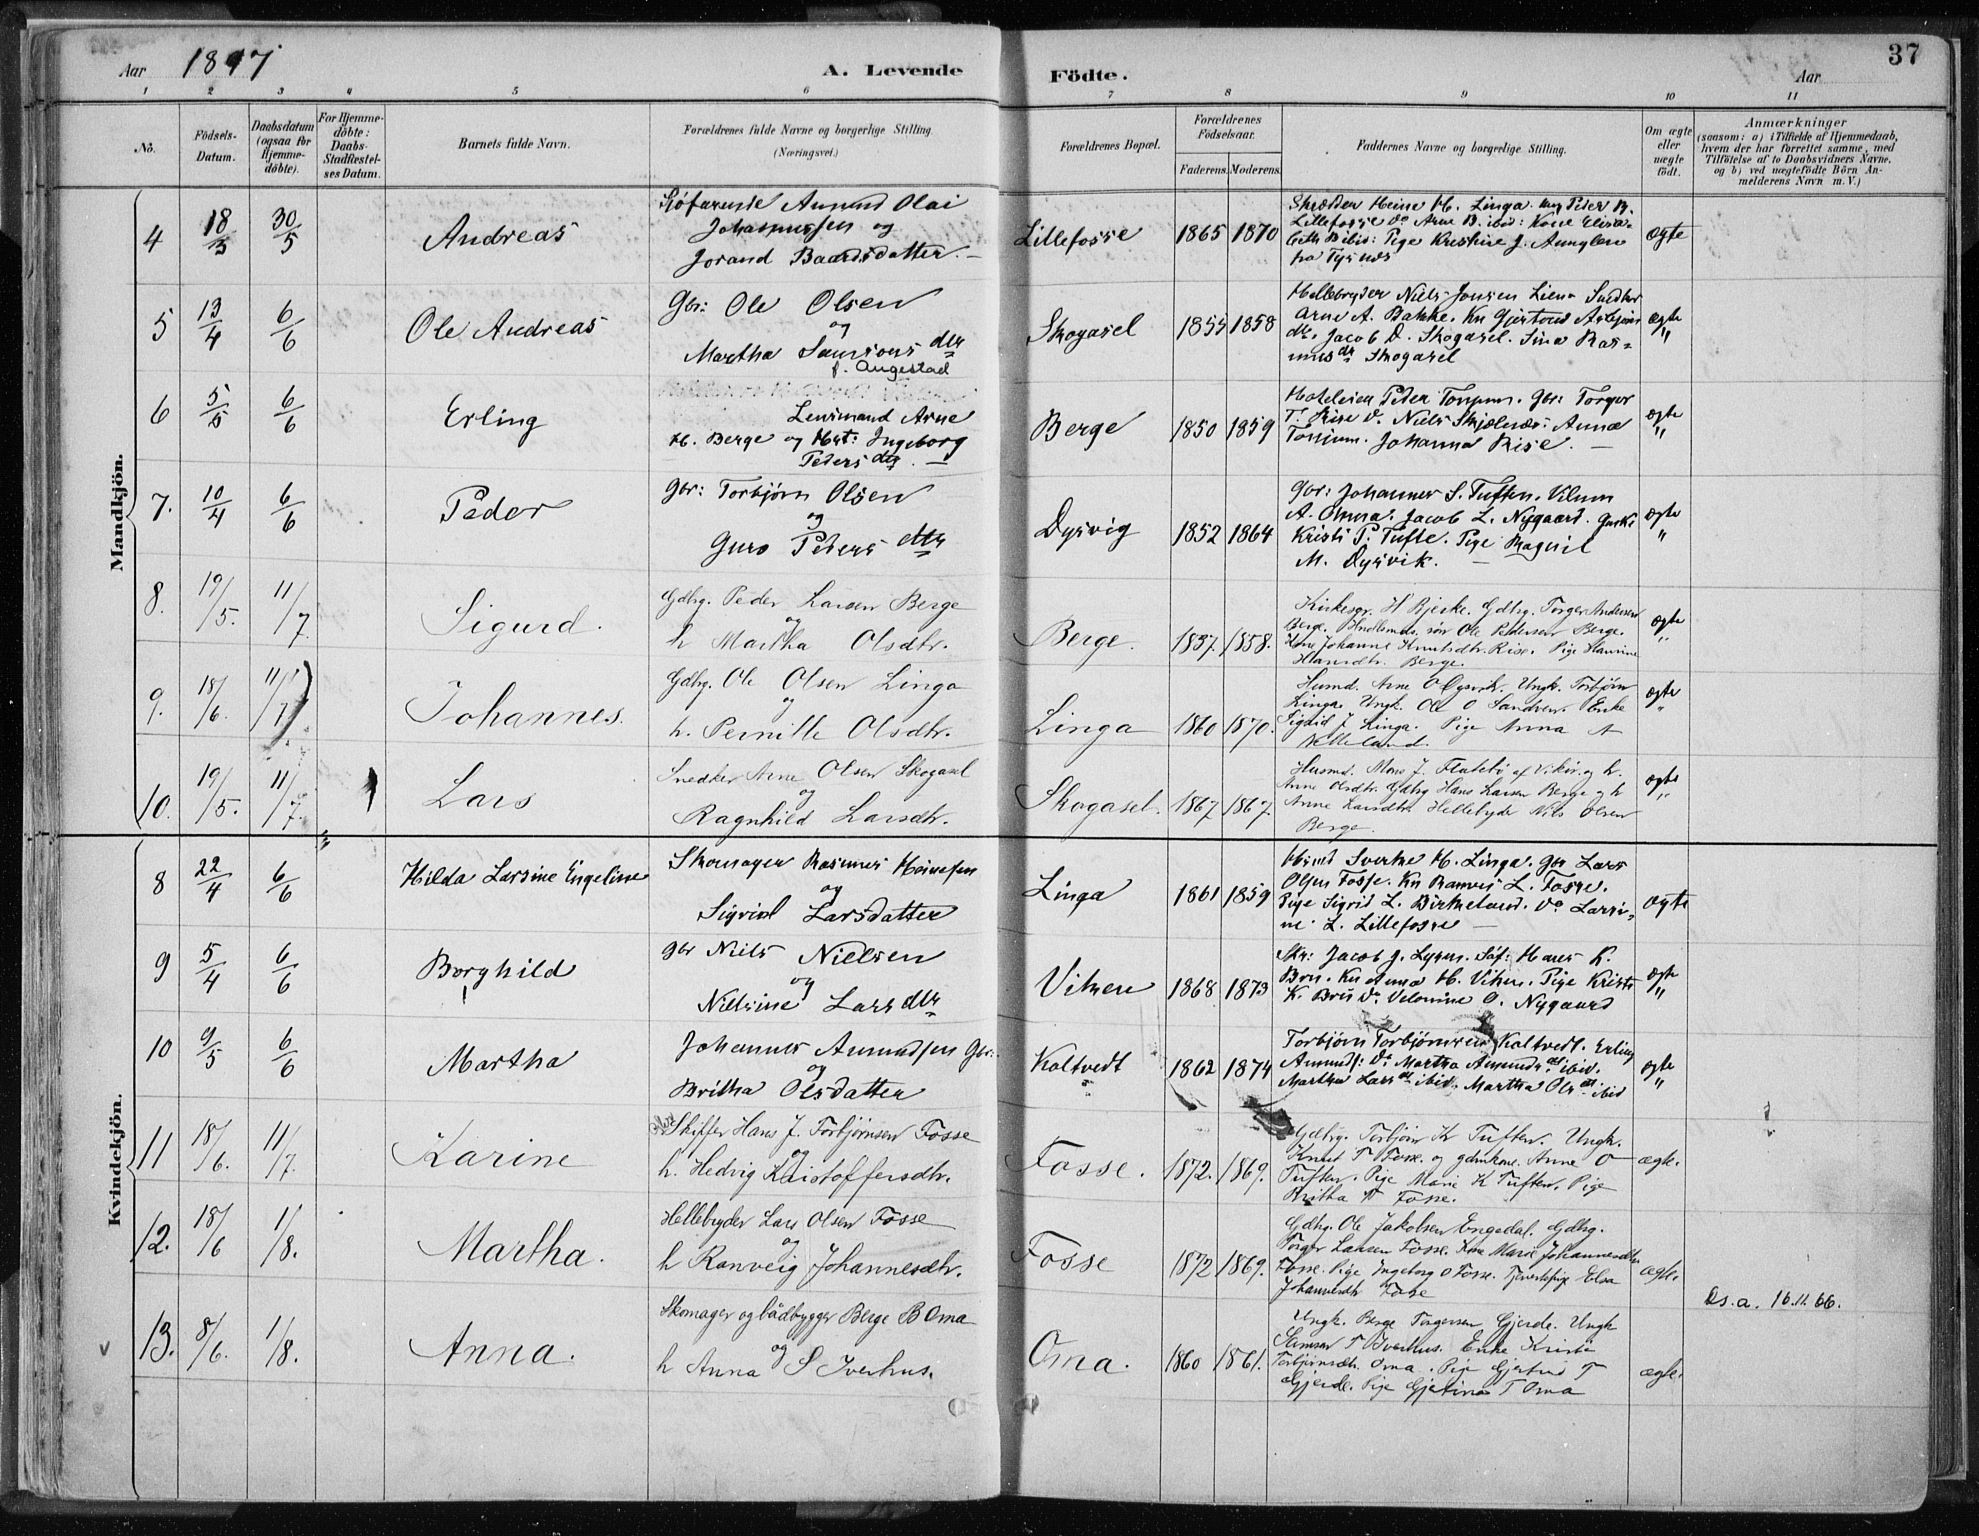 Aar 1897
A. Levende Födte.
Aar
37
1 2 3 4 5 6 7 8 9 10 11
No.
Födsels-Datum.
Daabsdatum (ogsaa for Hjemme-döbte).
For Hjemme-döbte: Daabs-Stadfæstel-ses Datum.
Barnets fulde Navn.
Forældrenes fulde Navne og borgerlige Stilling. (Næringsvei.)
Forældrenes Bopæl.
Forældrenes Födselsaar.
Faderens. Moderens.
Faddernes Navne og borgerlige Stilling.
Om ægte eller uægte födt.
Anmærkninger
(saasom: a) i Tilfælde af Hjemmedaab,
hvem der har forrettet samme, med
Tilföielse af to Daabsvidners Navne,
og b) ved uægtefödte Börn An-
melderens Navn m. V.)
Mandkjön.
4 18/3 30/5 Andreas
Sjöfarende Amund Olai
Johannessen og
Jorand Baardsdatter.
Lillefosse 1865 1870
Skrædder Heine H. Linga.
Lillefosse do Arne B. ibid: Kone Elisa-
beth B ibid: Pige Kristine J.
fra Tysnes
ægte
5 13/4 6/6 Ole Andreas
Gbr: Ole Olsen
og
Martha Samsons dtr
f. Augestad
Skogasel 1855 1858
Hellebryder Niels Jonsen Lien Snedker
Arne A. Bakke. Kn Gjertrud Asbjörns
dtr. Jacob D. Skogasel. Sina Ras-
mus dr Skogasel
ægte "
6 5/5 6/6 Erling
Lensmand Arne
H. Berge og Hst: Ingeborg
Peders dtr.
Berge 1850 1859
Hoteleier Peder Tonjum. Gbr: Torger
T. Rise do. Niels Skjelnes: Anna
Tonjum. Johanna Rise.
ægte "
7. 10/4 6/6 Peder
Gbr: Torbjörn Olsen
og
Guro Peders dtr
Dysvig 1852 1864
Gbr: Johannes S. Tuften. Vilum
A. Oma. Jacob L. Nygaard.
Kristi P. Tufte. Pige Magnil
M. Dysvik.
ægte "
8. 19/5. 11/7. Sigurd.
Gdbg. Peder Larsen Berge
og
h Martha Olsdtr.
Berge. 1837. 1858.
Kirkesgr. H Bjerke. Gdbg. Torger Andersen
Berge. Handlsmds. sön Ole Pedersen Berge.
Kone Johanne Knutsdtr. Rise. Pige Hanrine
Hansdtr. Berge.
ægte "
9. 18/6. 11/7 Johannes.
Gdbg. Ole Olsen Linga
og
h. Pernille Olsdtr.
Linga 1860 1870.
Husmd. Arne O Dysvik. Ungk. Torbjörn
Linga. Ungk. Ole O Sandven. Enke
Sigrid J Linga. Pige Anna A
Velleland.
ægte "
10. 19/5. 11/7. Lars
Snedker Arne Olsen Skogasel
og
Ragnhild Larsdtr.
Skogasel. 1867 1867.
Husmd. Mons J. Flatebö af Vikör og h.
Anne Olsdtr. Gdbg Hans Larsen Berge og h
Anne Larsdtr. Hellebyder Nils Olsen
Berge.
ægte "
Kvindekjön.
8 22/4 6/6 Hilda Larsine Engeline
Skomager Rasmus Heinesen
og
Sigrid Larsdatter
Linga 1861 1859
Hsmd Sverke H. Linga. Gbr Lars
Olsen Fosse. Kn Ranvei L. Fosse.
Pige Sigrid L. Birkeland. do Larsi-
ne L. Lillefosse
ægte
9 5/4 6/6 Borghild
Gbr Niels Nielsen
og
Nielsine Lars dtr
Viken 1868 1873
Skr: Jacob J. Lyren. Söf: Hans K.
Bru. Kn Anna H. Viken. Pige Kristi
K. Bru do Velomine O. Nygaard
ægte "
10 9/5 6/6 Martha
Johannes Amundsen Gbr:
og
Britha Olsdatter
Koltvedt 1862 1874
Torbjörn Torbjörnsen Koltvedt. Erling
Amunds: do Martha Amunds dt ibid.
Martha Lars dt ibid. Martha Ols dt. ibid
ægte "
11 18/6. 11/7. Karine
Skiffer Hans J. Torbjörnsen Fosse
og
h. Hedvig Kristoffersdtr.
Fosse. 1872. 1869.
Gdbg. Torbjörn K Tuften. Ungk.
Knut T Fosse. og gdmkone. Anne O
Tuften. Pige Marie K Tuften. Pige
Britha T Fosse.
ægte.
12. 18/6 1/8. Martha.
Hellebryder Lars Olsen Fosse
og
h Ranveig Johannesdtr.
Fosse 1872 1869.
Gdbg. Ole Jakobsen Engedal. Gdbg.
Torger Larsen Fosse. Kone Marie Johannesdtr
Fosse. Pige Ingeborg O Fosse. Tjenestepige Elsa
Johannesdtr Fosse
ægte.
Ds. a. 16.11.66.
13. 8/6. 1/8. Anna.
Skomager og bådbygger Berge B Oma
og
h Anna S Iverhus.
Oma. 1860 1861.
Ungk. Berge Torgersen Gjerde. Ungk
Samson T Iverhus. Enke Kristi
Torbjörnsdtr. Oma. Pige Gjertrud T
Gjerde. Pige Gjertina T Oma
ægte.